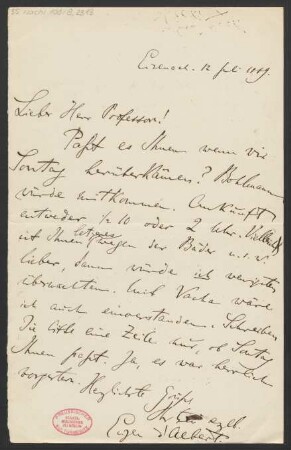 Eisenach. 12 Juli 1889.
Lieber Herr Professor!
Paßt es Ihnen wenn wir
Sonntag herüberkämen? Bohlmann
würde mitkommen. Ankunft
entweder ½ 10 oder 2 Uhr. Vielleicht
ist Ihnen letzteres wegen der Bäder u.s.w.
lieber, dann würde ich
übernachten. Mit Vacha wäre
ich auch einverstanden. Schreiben
Sie bitte eine Zeile nur, ob Sonntag
Ihnen paßt. Ja, es war herrlich
vorgestern. Herzlichste Grüße
Eugen d'Albert.